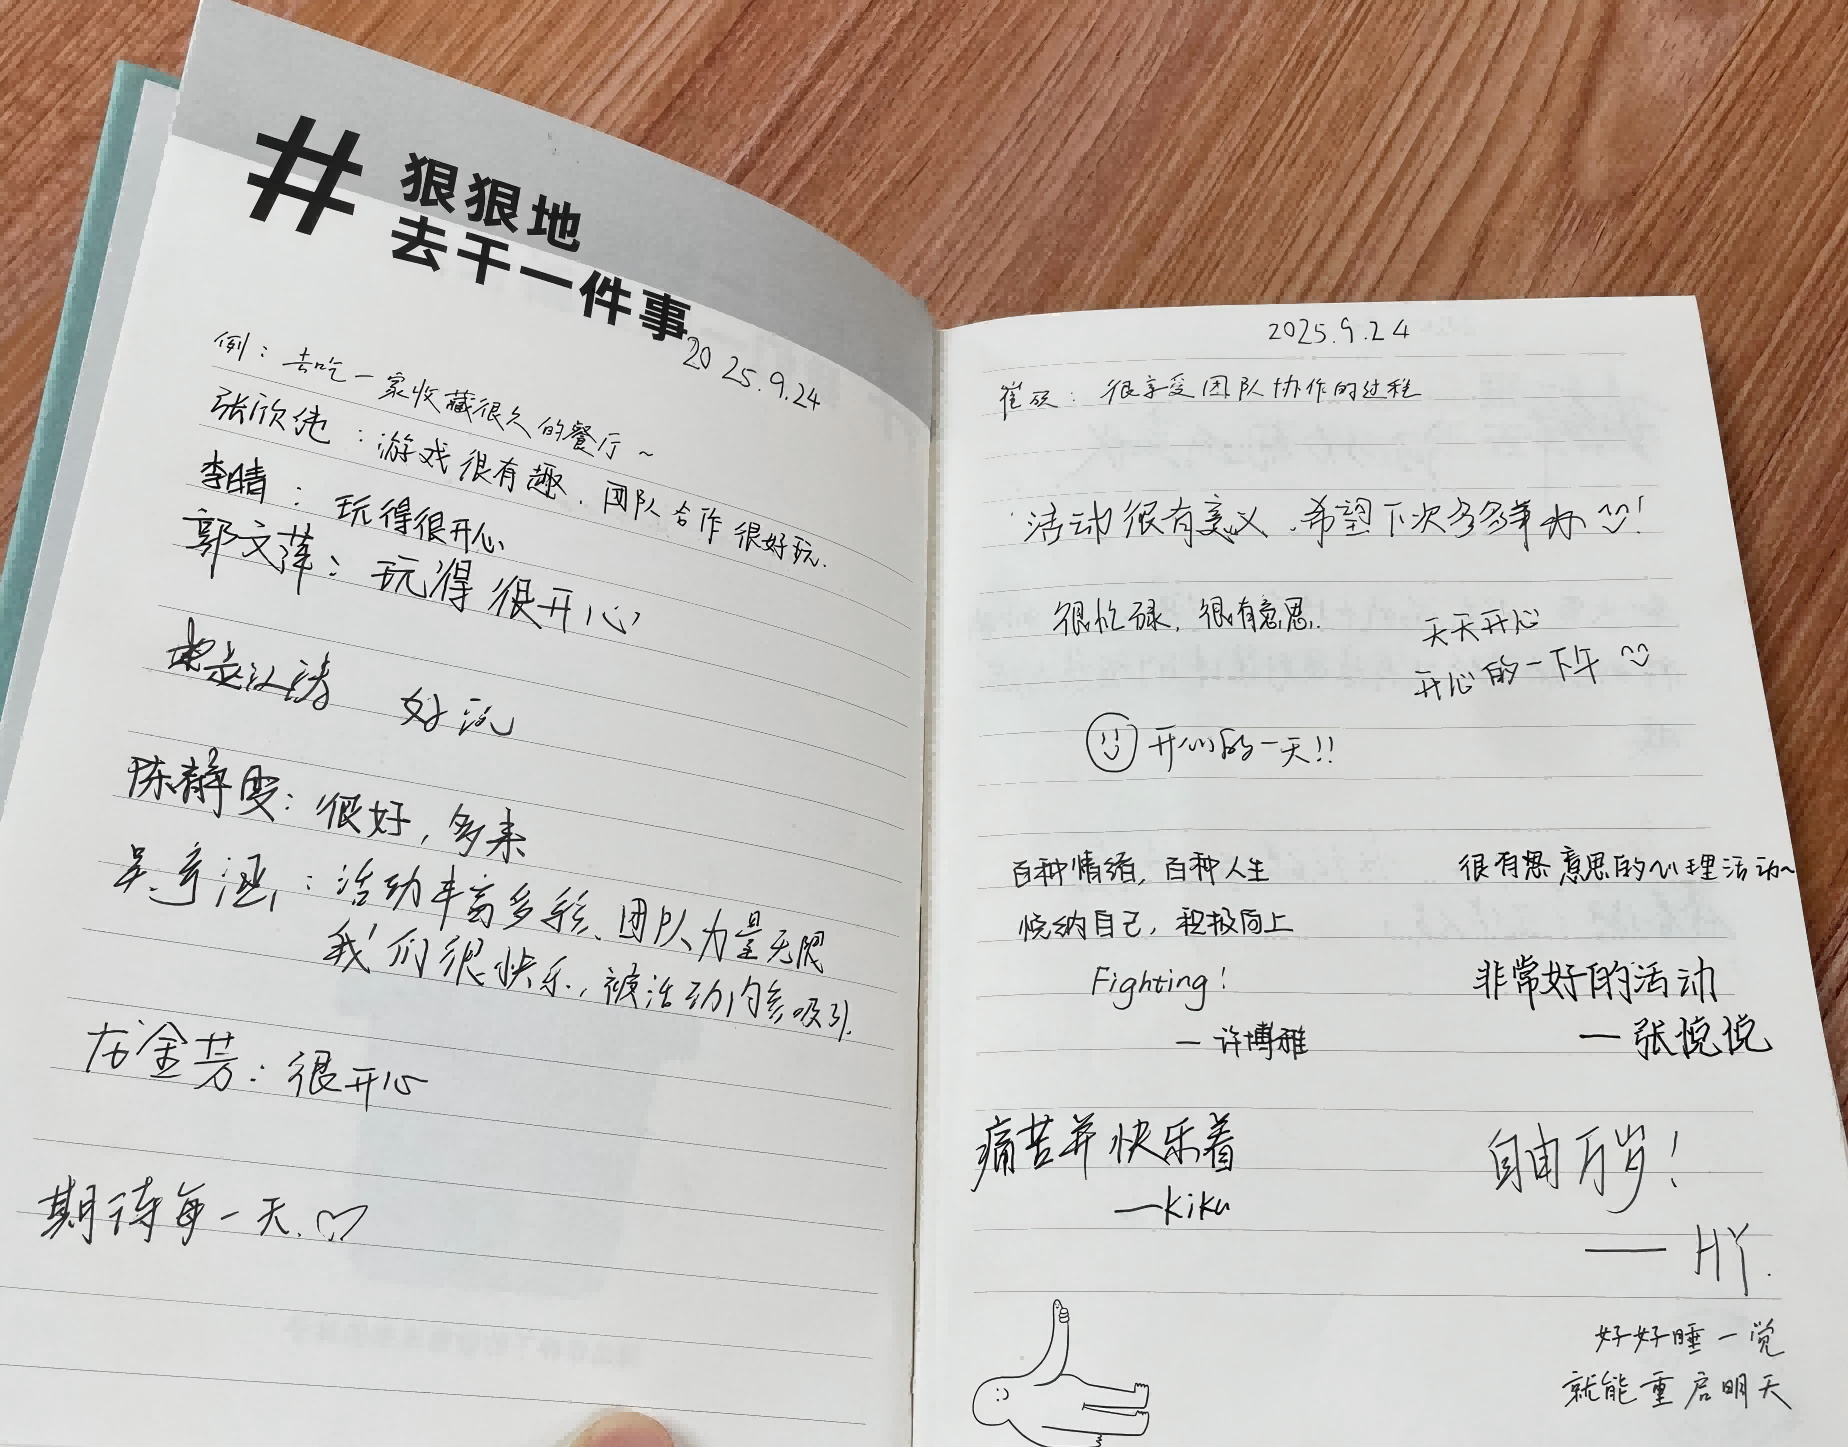 #
狠狠地
去干一件事
2025.9.24
例：去吃一家收藏很久的餐厅~
张欣纯：游戏很有趣.团队合作很好玩.
李晴：玩得很开心
郭文萍：玩得很开心
好玩
陈静雯：很好，多来
吴彦泓：活动丰富多彩、团队力量无限
我们很快乐，被活动内容吸引.
古金芳：很开心
期待每一天.♡
2025.9.24
崔欣：很享受团队协作的过程
活动很有意义.希望下次多多举办!
很忙碌，很有意思.
天天开心
开心的一下午
开心的一天!!
百种情绪，百种人生
悦纳自己，积极向上
Fighting!
— 许博雅
很有想意思的心理活动~
非常好的活动
— 张悦悦
痛苦并快乐着
—kiku
自由万岁！
— HY.
好好睡一觉
就能重启明天